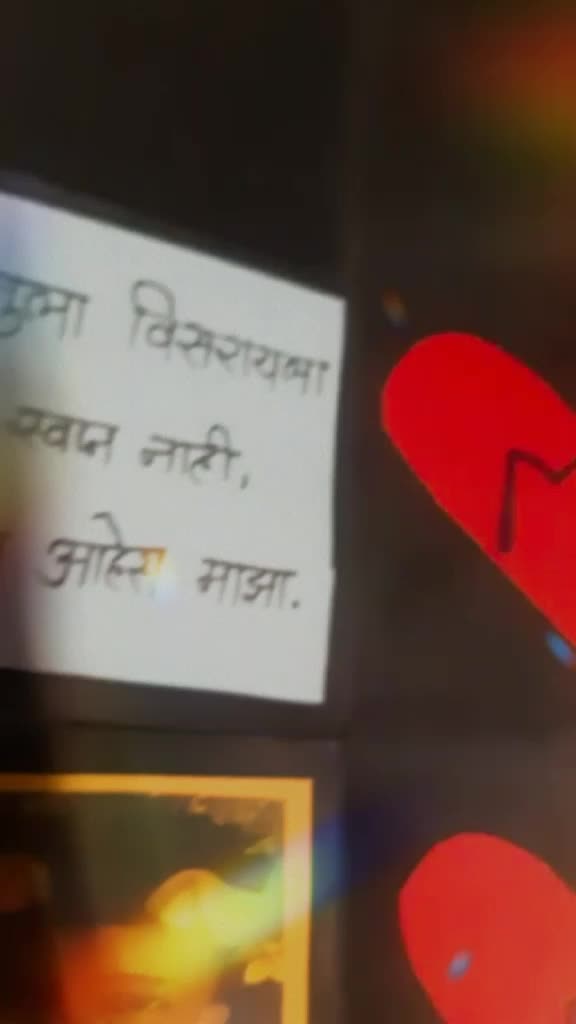 विसरायला
स्वप्न नाही,
आहेस माझा.
M